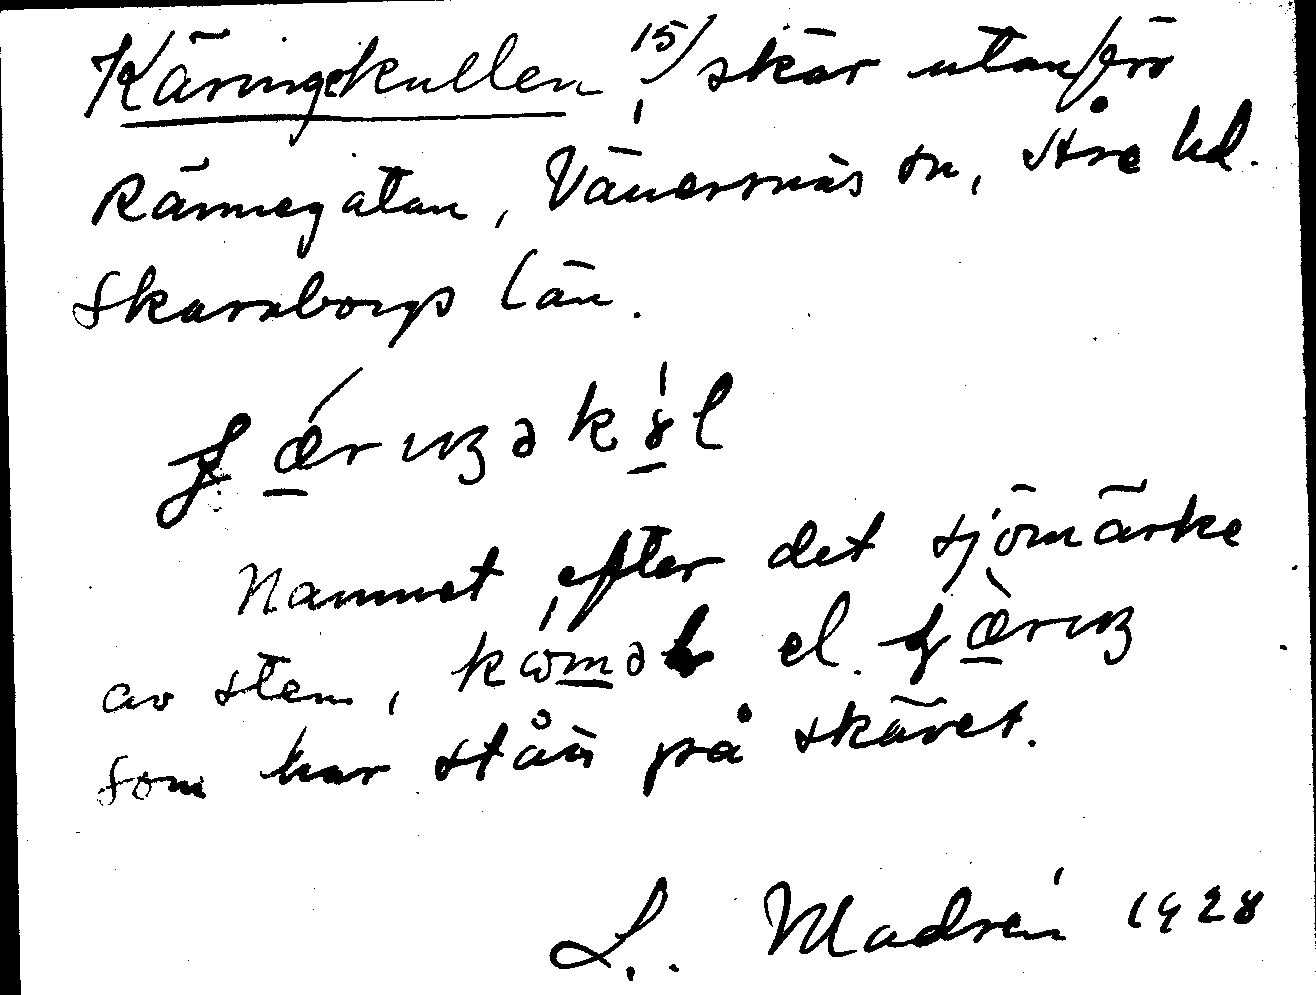 Käringekullen, 15/ skär utanför
Rännegatan, Vänersnäs sn, Åse hd.
Skaraborgs län.
Namnet efter det sjömärke
av sten, el.
som har stått på skäret.
L. Madrén 1928